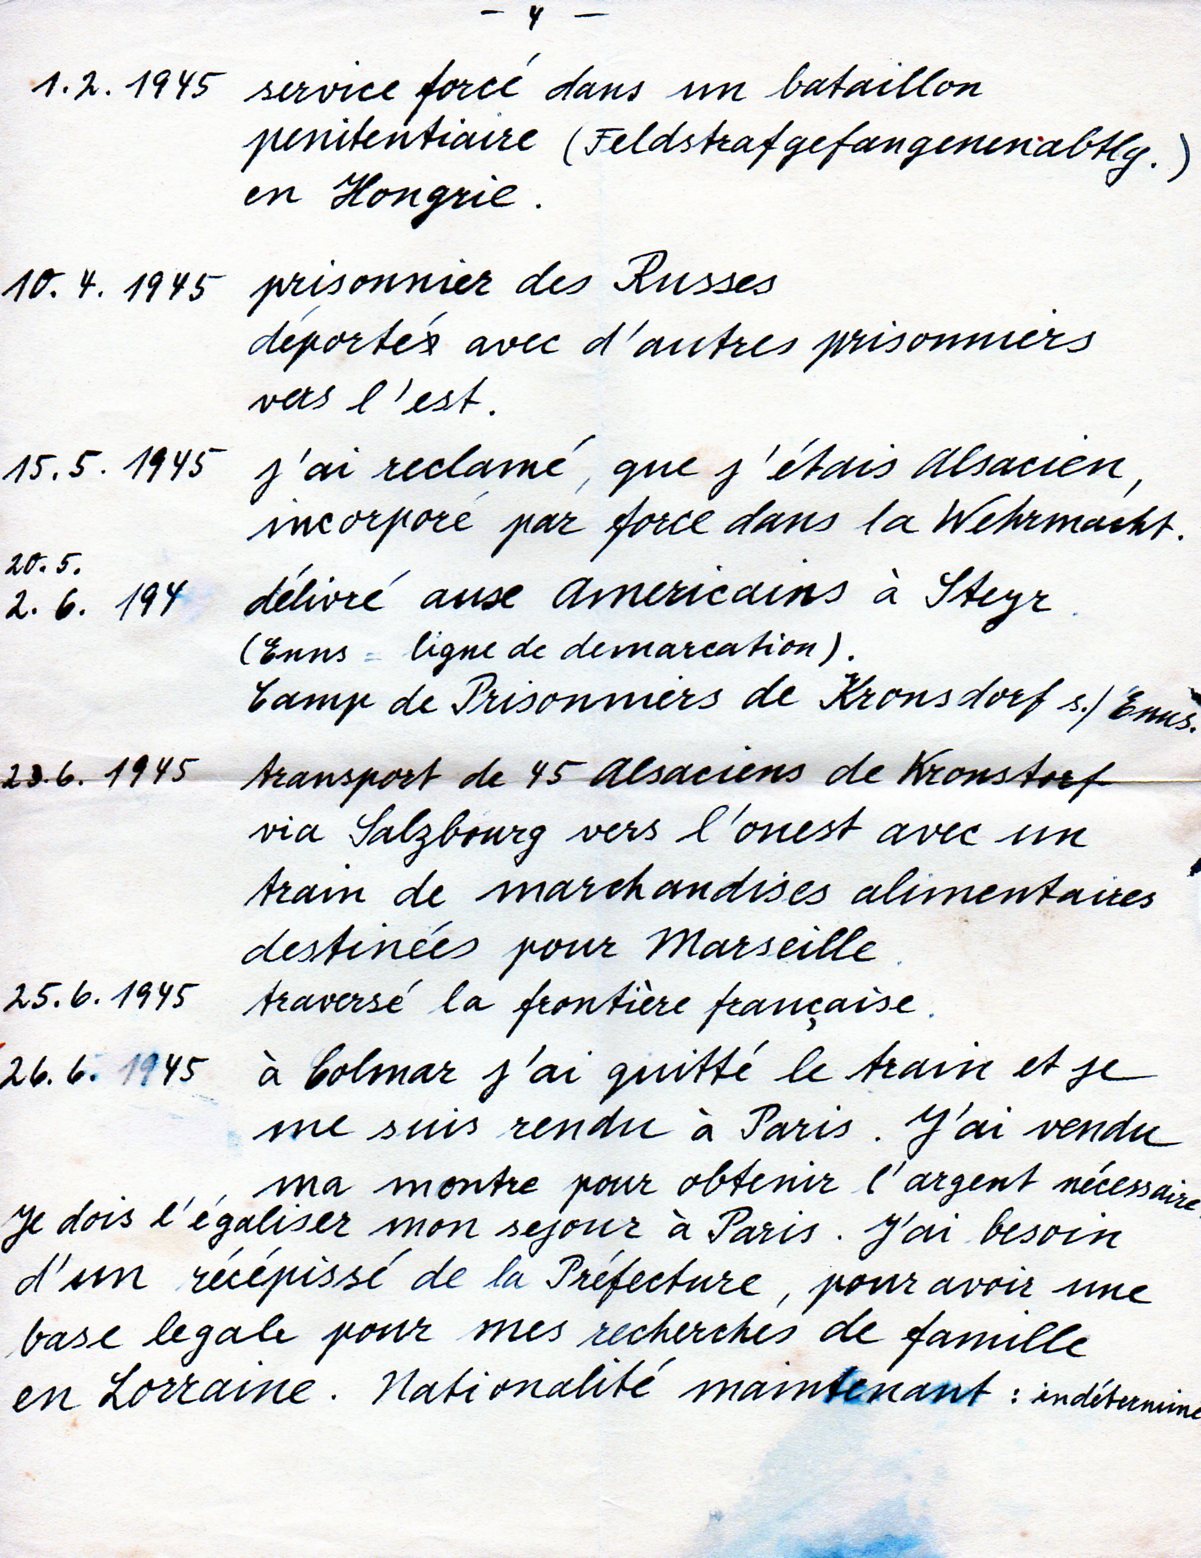 - 4 -
1.2. 1945 service forcé dans un bataillon
penitentiaire (Feldstrafgefangenenabtlg.)
en Hongrie.
10. 4. 1945 prisonnier des Russes
déporté avec d'autres prisonniers
vers l'est.
15. 5. 1945 j'ai reclamé, que j'étais Alsacien,
incorporé par force dans la Wehrmacht.
20. 5.
2. 6. 194 délivré aux Americains à Steyr.
(Enns = ligne de demarcation).
Camp de Prisonniers de Kronsdorf s./Enns.
23.6. 1945 transport de 45 Alsaciens de Kronstorf
via Salzbourg vers l'ouest avec un
train de marchandises alimentaires
destinées pour Marseille.
25.6.1945 traversé la frontière française.
26.6. 1945 à Colmar j'ai quitté le train et je
me suis rendu à Paris. J'ai vendu
ma montre pour obtenir l'argent nécessaire
Je dois l'égaliser mon sejour à Paris. J'ai besoin
d'un récépissé de la Préfecture, pour avoir une
base legale pour mes recherches de famille
en Lorraine. Nationalité maintenant : indétermine